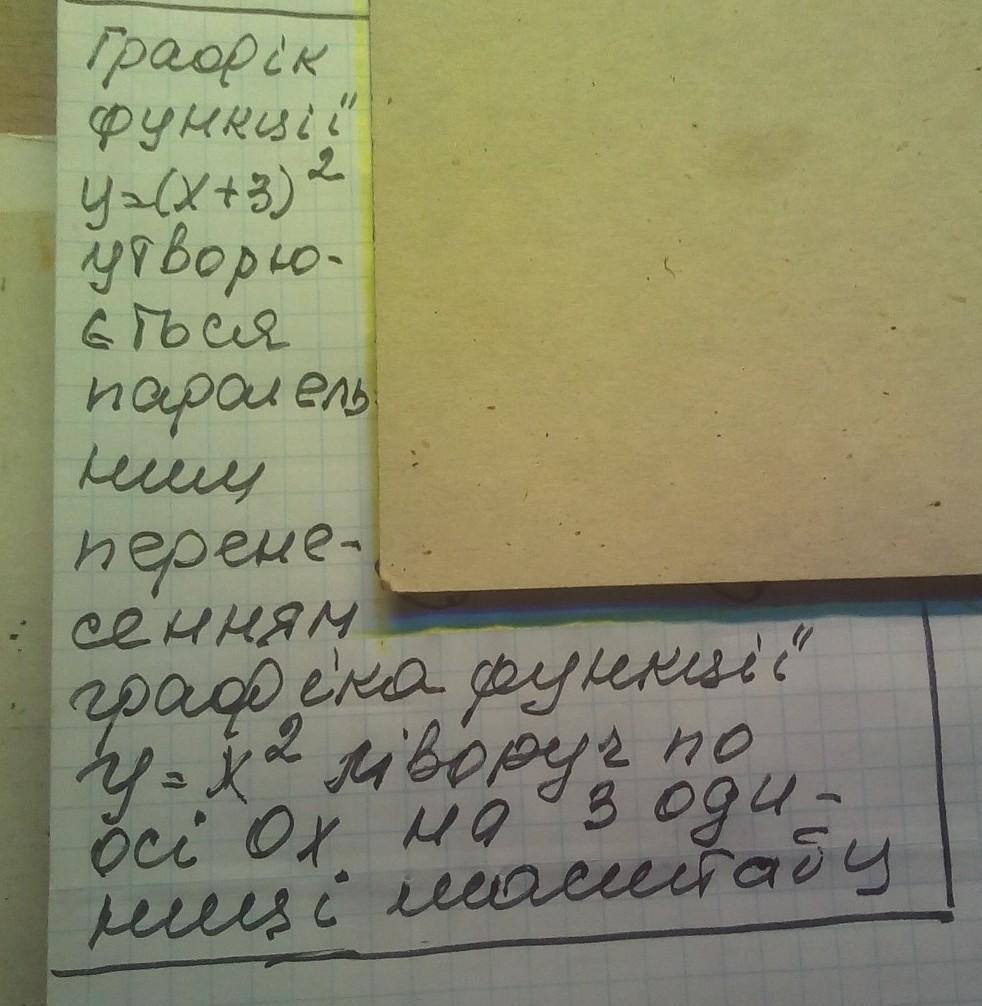 Графік
функції
y=(x+3)²
утворю-
ється
паралель
ним
перене-
сенням
графіка функції
y=x² ліворуч по
осі Ox на 3 оди-
ниці масштабу